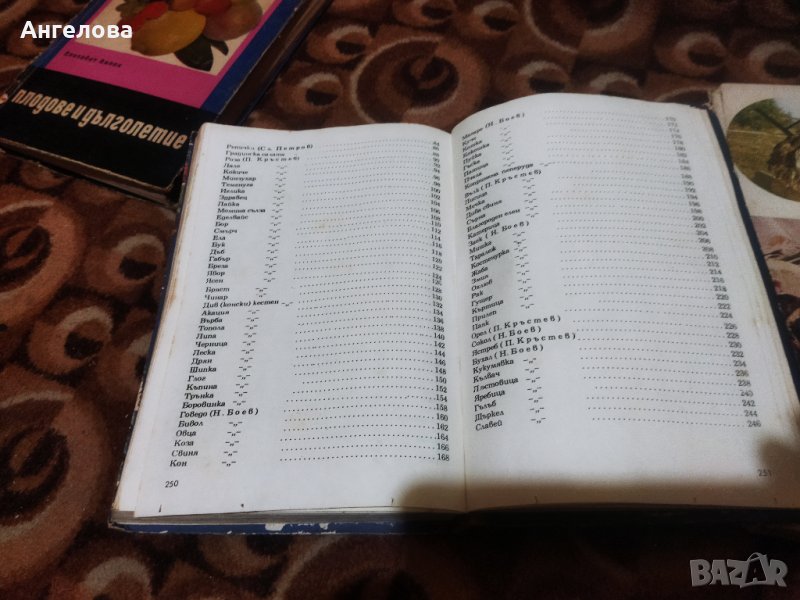 Ангелова
Елизабет Ванек
плодове и дълголетие
Ретичка (Сл. Петров) 84
Роза (П. Кръстев)
Лале -„-
Кокиче -„-
Минзухар -„-
Теменуга -„-
Иглика -„- 100
Здравец -„- 102
Лайка -„- 104
Момина сълза -„- 106
Еделвайс -„- 108
Бор -„- 110
Смърч -„- 112
Ела -„- 114
Бук -„- 116
Дъб -„- 118
Габър -„- 120
Бреза -„- 122
Явор -„- 124
Ясен -„- 126
Бряст -„- 128
Чинар -„- 130
Див (конски) кестен -„- 132
Акация -„- 134
Върба -„- 136
Топола -„- 138
Липа -„- 140
Черница -„- 142
Леска -„- 144
Дрян -„- 146
Шипка -„- 148
Глог -„- 150
Къпина -„- 152
Трънка -„- 154
Боровинка -„- 158
Говедо (Н. Боев) 160
Бивол -„- 162
Овца -„- 164
Коза -„- 166
Свиня -„- 168
Кон -„-
250
Магаре (Н. Боев) 170
Куче -„-
Котка -„- 174
Кокошка -„- 176
Пуйка -„- 178
Гъска -„- 180
Патица -„- 182
Пчела -„- 184
Копринена пеперуда -„- 186
Вълк (П. Кръстев) 188
Лисица -„- 190
Мечка -„- 192
Дива свиня -„- 194
Сърна -„- 196
Благороден елен -„- 198
Катерица -„- 200
Заяк (Н. Боев) 202
Мишка -„- 204
Таралеж -„- 206
Костенурка -„- 208
Жаба -„- 210
Змия -„- 212
Охлюв -„- 214
Рак -„- 216
Гущер -„- 218
Къртица -„- 220
Прилеп -„- 222
Паяк -„- 224
Орел (П. Кръстев) 226
Сокол (Н. Боев) 228
Ястреб (П. Кръстев) 230
Бухал (Н. Боев) 232
Кукумявка -„- 234
Кълвач -„- 236
Лястовица -„- 238
Яребица -„- 240
Гълъб -„- 242
Щъркел -„- 244
Славей -„- 246
251
BAZAR